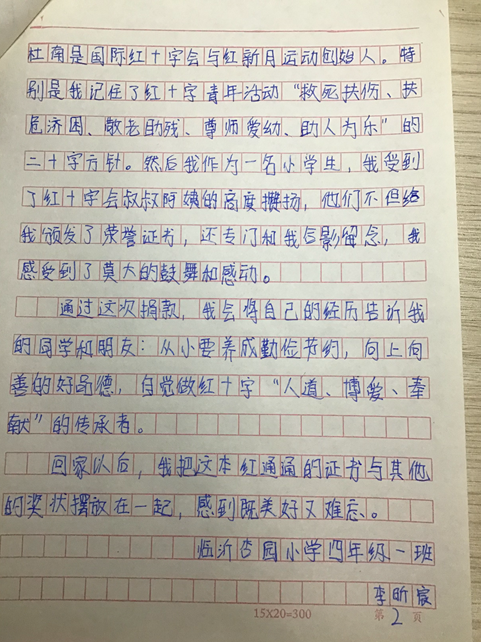 杜南是国际红十字会与红新月运动创始人。特
别是我记住了红十字青年活动“救死扶伤、扶
危济困、敬老助残、尊师爱幼、助人为乐”的
二十字方针。然后我作为一名小学生，我受到
了红十字会叔叔阿姨的高度攒扬，他们不但给
我颁发了荣誉证书，还专门和我合影留念，我
感受到了莫大的鼓舞和感动。
通过这次捐款，我会将自己的经历告诉我
的同学和朋友：从小要养成勤俭节约，向上向
善的好品德，自觉做红十字“人道、博爱、奉
献”的传承者。
回家以后，我把这本红通通的证书与其他
的奖状摆放在一起，感到既美好又难忘。
临沂杏园小学四年级一班
李昕宸
15X20=300
第 2 页